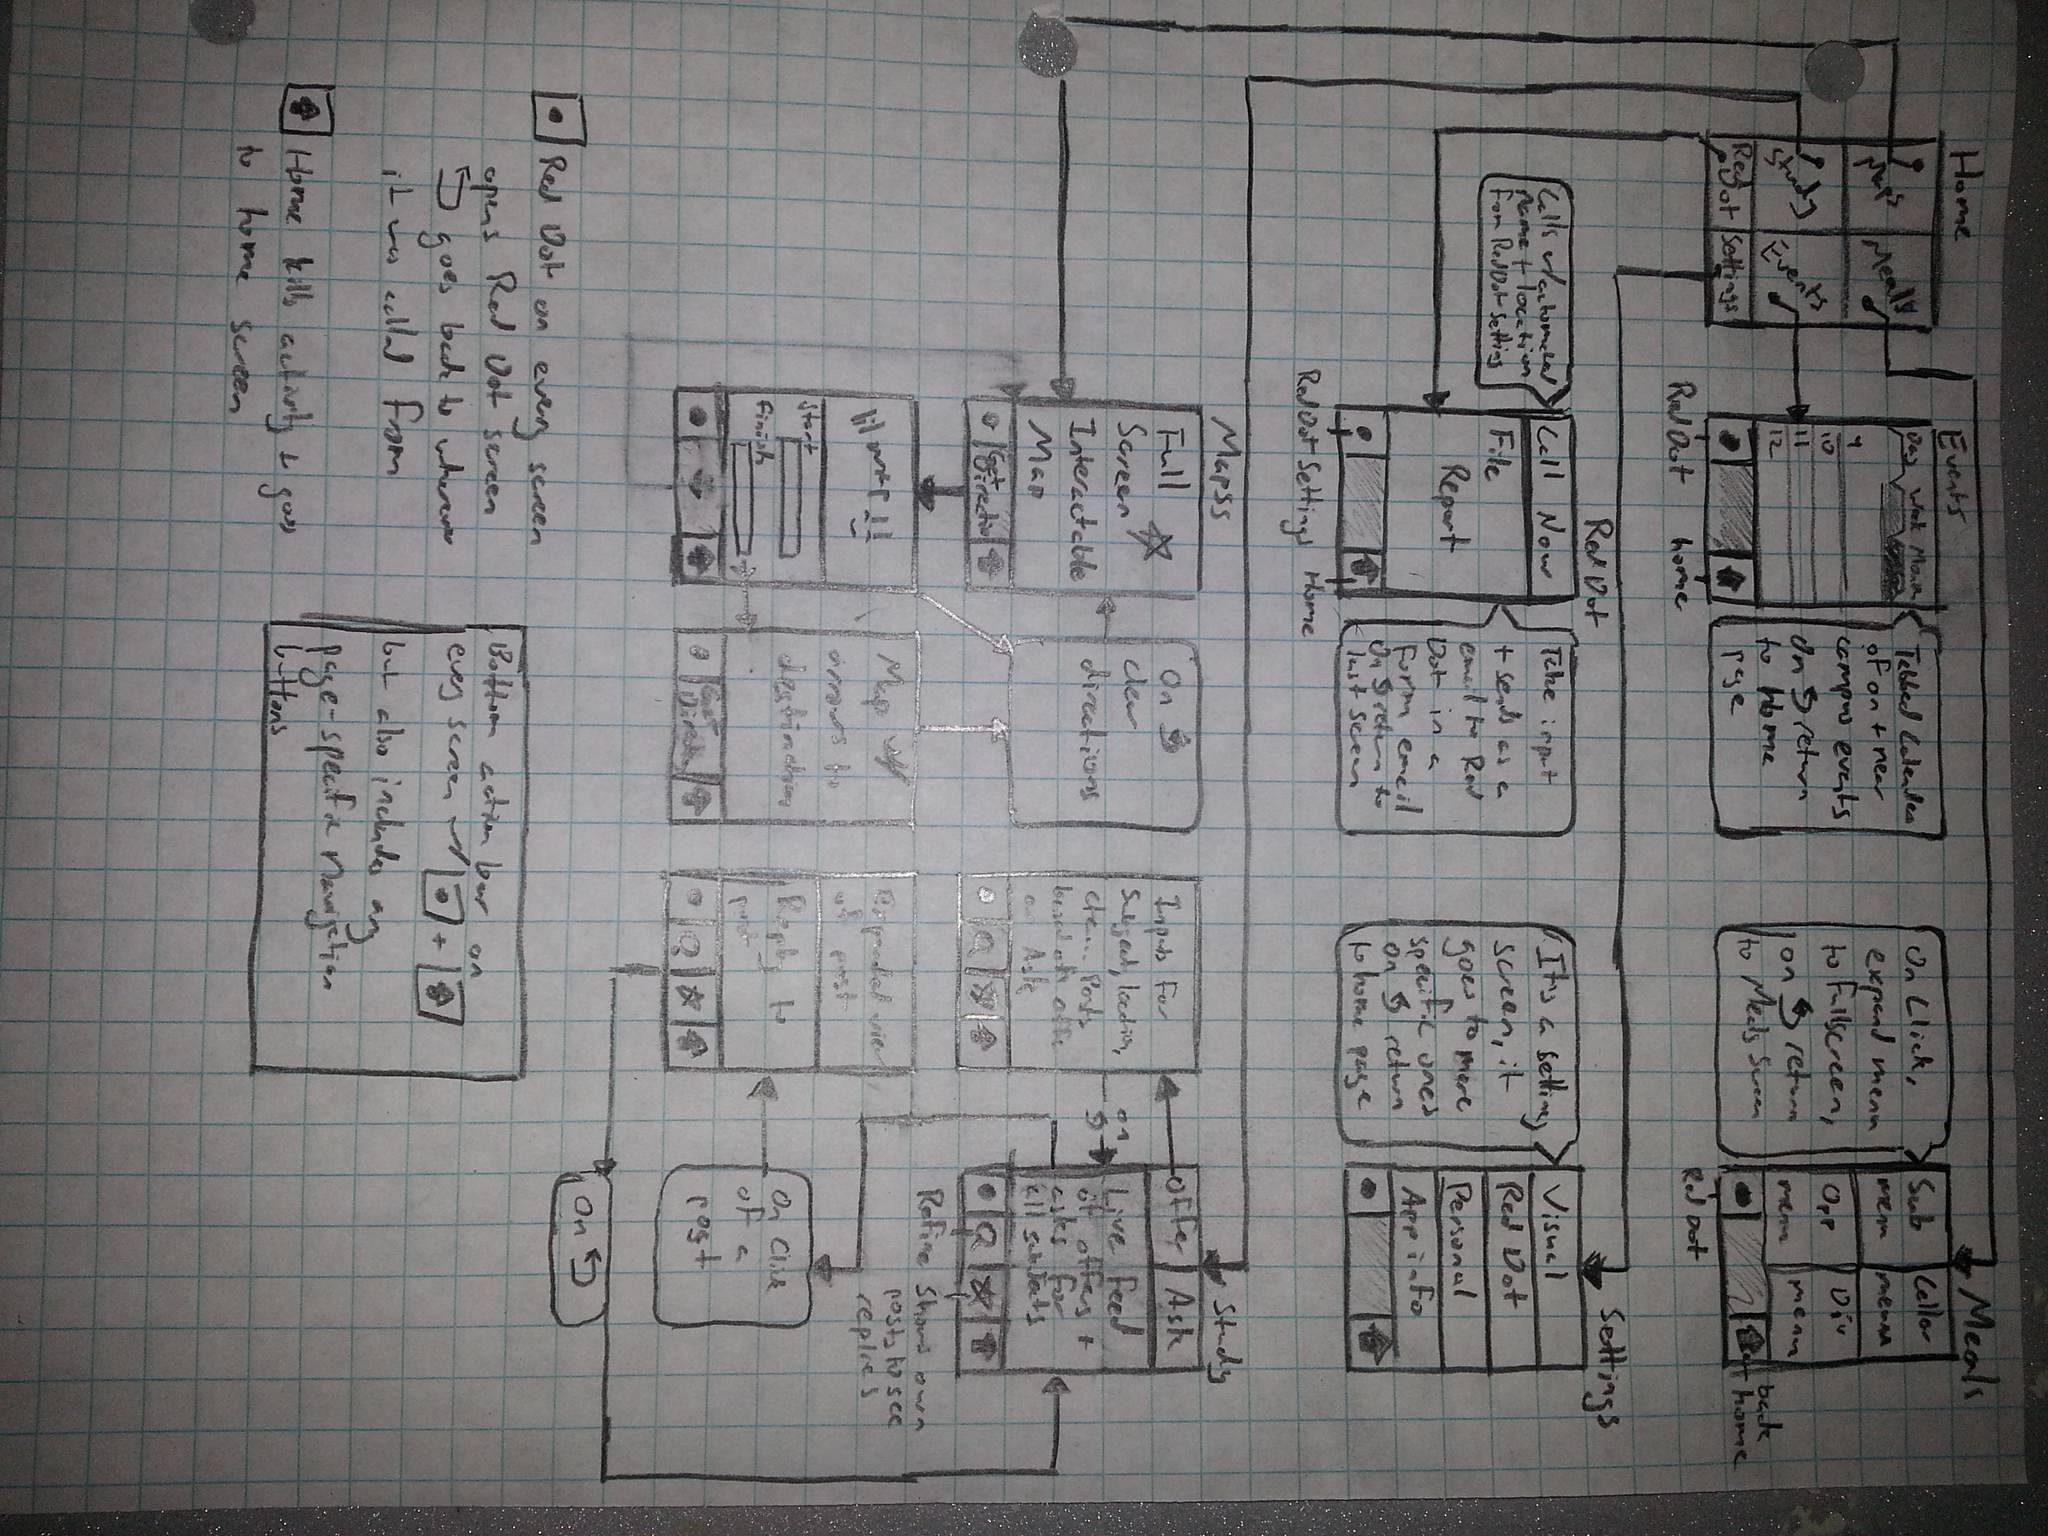 Home
Maps
Meals
Study
Events
Red Dot
Settings
Events
Day Week Month
9
10
11
12
Red Dot
home
Tabbed Calendar
of on + near
campus events
On return
to home
page
On Click,
expand menu
to fullscreen,
on return
to Meals Screen
Meals
Sub
menu
Cellar
menu
Opp
menu
Div
menu
back
home
Red Dot
Red Dot
Calls w/automated
name + location
from Red Dot Setting
Call Now
File
Report
Red Dot Settings
Home
Take input
+ sends as a
email to Red
Dot in a
Form email
On return to
last screen
It's a setting
screen, it
goes to more
specific ones
on return
to home page
Settings
Visual
Red Dot
Personal
App info
Mapss
Full
Screen
Interactable
Map
Get
Directions
On
clear
directions
Inputs for
Subject, location,
etc... Posts
based off offer
or Ask
on
Study
Offer
Ask
Live Feed
of offers +
asks for
all subjects
Refine
Shows own
posts to see
replies
lil map !!
Start
Finish
Map w/
arrows to
destination
Get
Directions
Expanded view
of post
Reply to
post
On Click
of a
post
On
Red Dot on every screen
opens Red Dot screen
goes back to wherever
it was called from
Home kills activity + goes
to home screen
Bottom action bar on
every screen w/ +
but also includes any
page-specific navigation
buttons